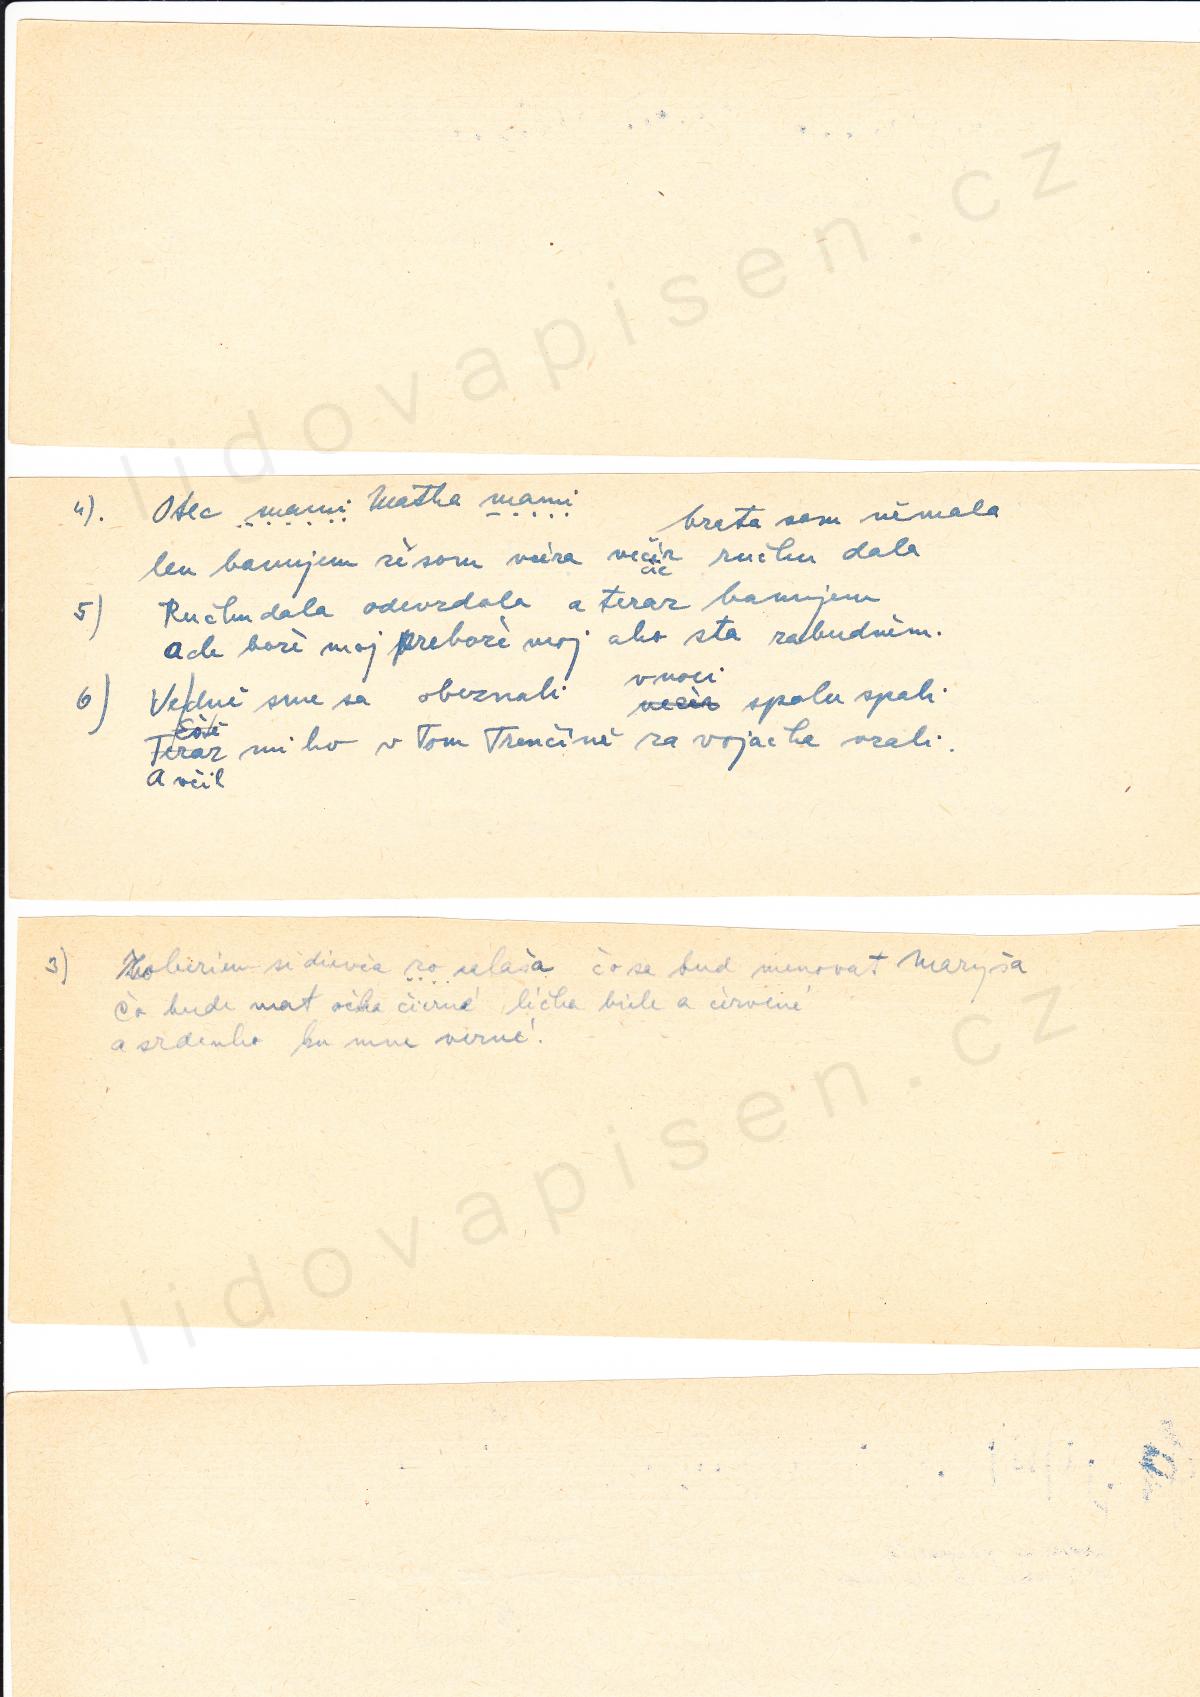 4). Otec mami Matka mami brata som němala
len banujem žě som včéra večér ručku dala
čič
5) Ručku dala odevzdala a teraz banujem
ach božě moj přebožě moj ako sťa zabudněm.
vnoci
6) Vedně sme sa obeznali večér spolu spali
Teraz mi ho v Tom Trenčíně za vojačka vzali.
A včil
3) Zoberiem si dievča zo salaša čo sa bud menovat Maryša
Čo bude mat očka čierné líčka biele a červené
a srdenko ku mne verné.
lidovapisen.cz
lidovapisen.cz